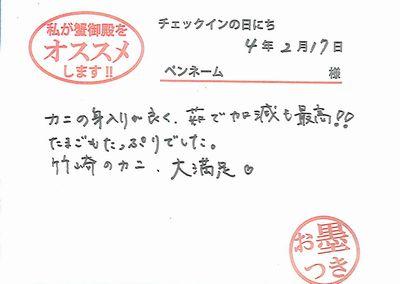 私が蟹御殿を
オススメ
します!!
チェックインの日にち
4年2月17日
ペンネーム 様
カニの身入りが良く、茹で加減も最高!!
たまごもたっぷりでした。
竹崎のカニ、大満足♡
お墨
つき